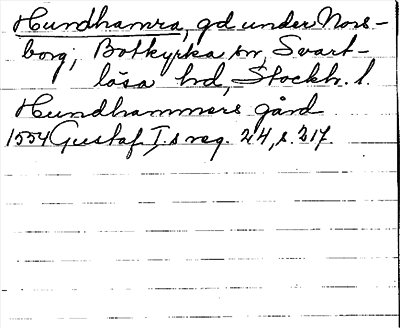 Hundhamra, gd under Nors-
borg, Botkyrka sn, Svart-
lösa hd, Stockh. l.
Hundhammers gård
1554 Gustaf I.s reg. 24, s. 217.